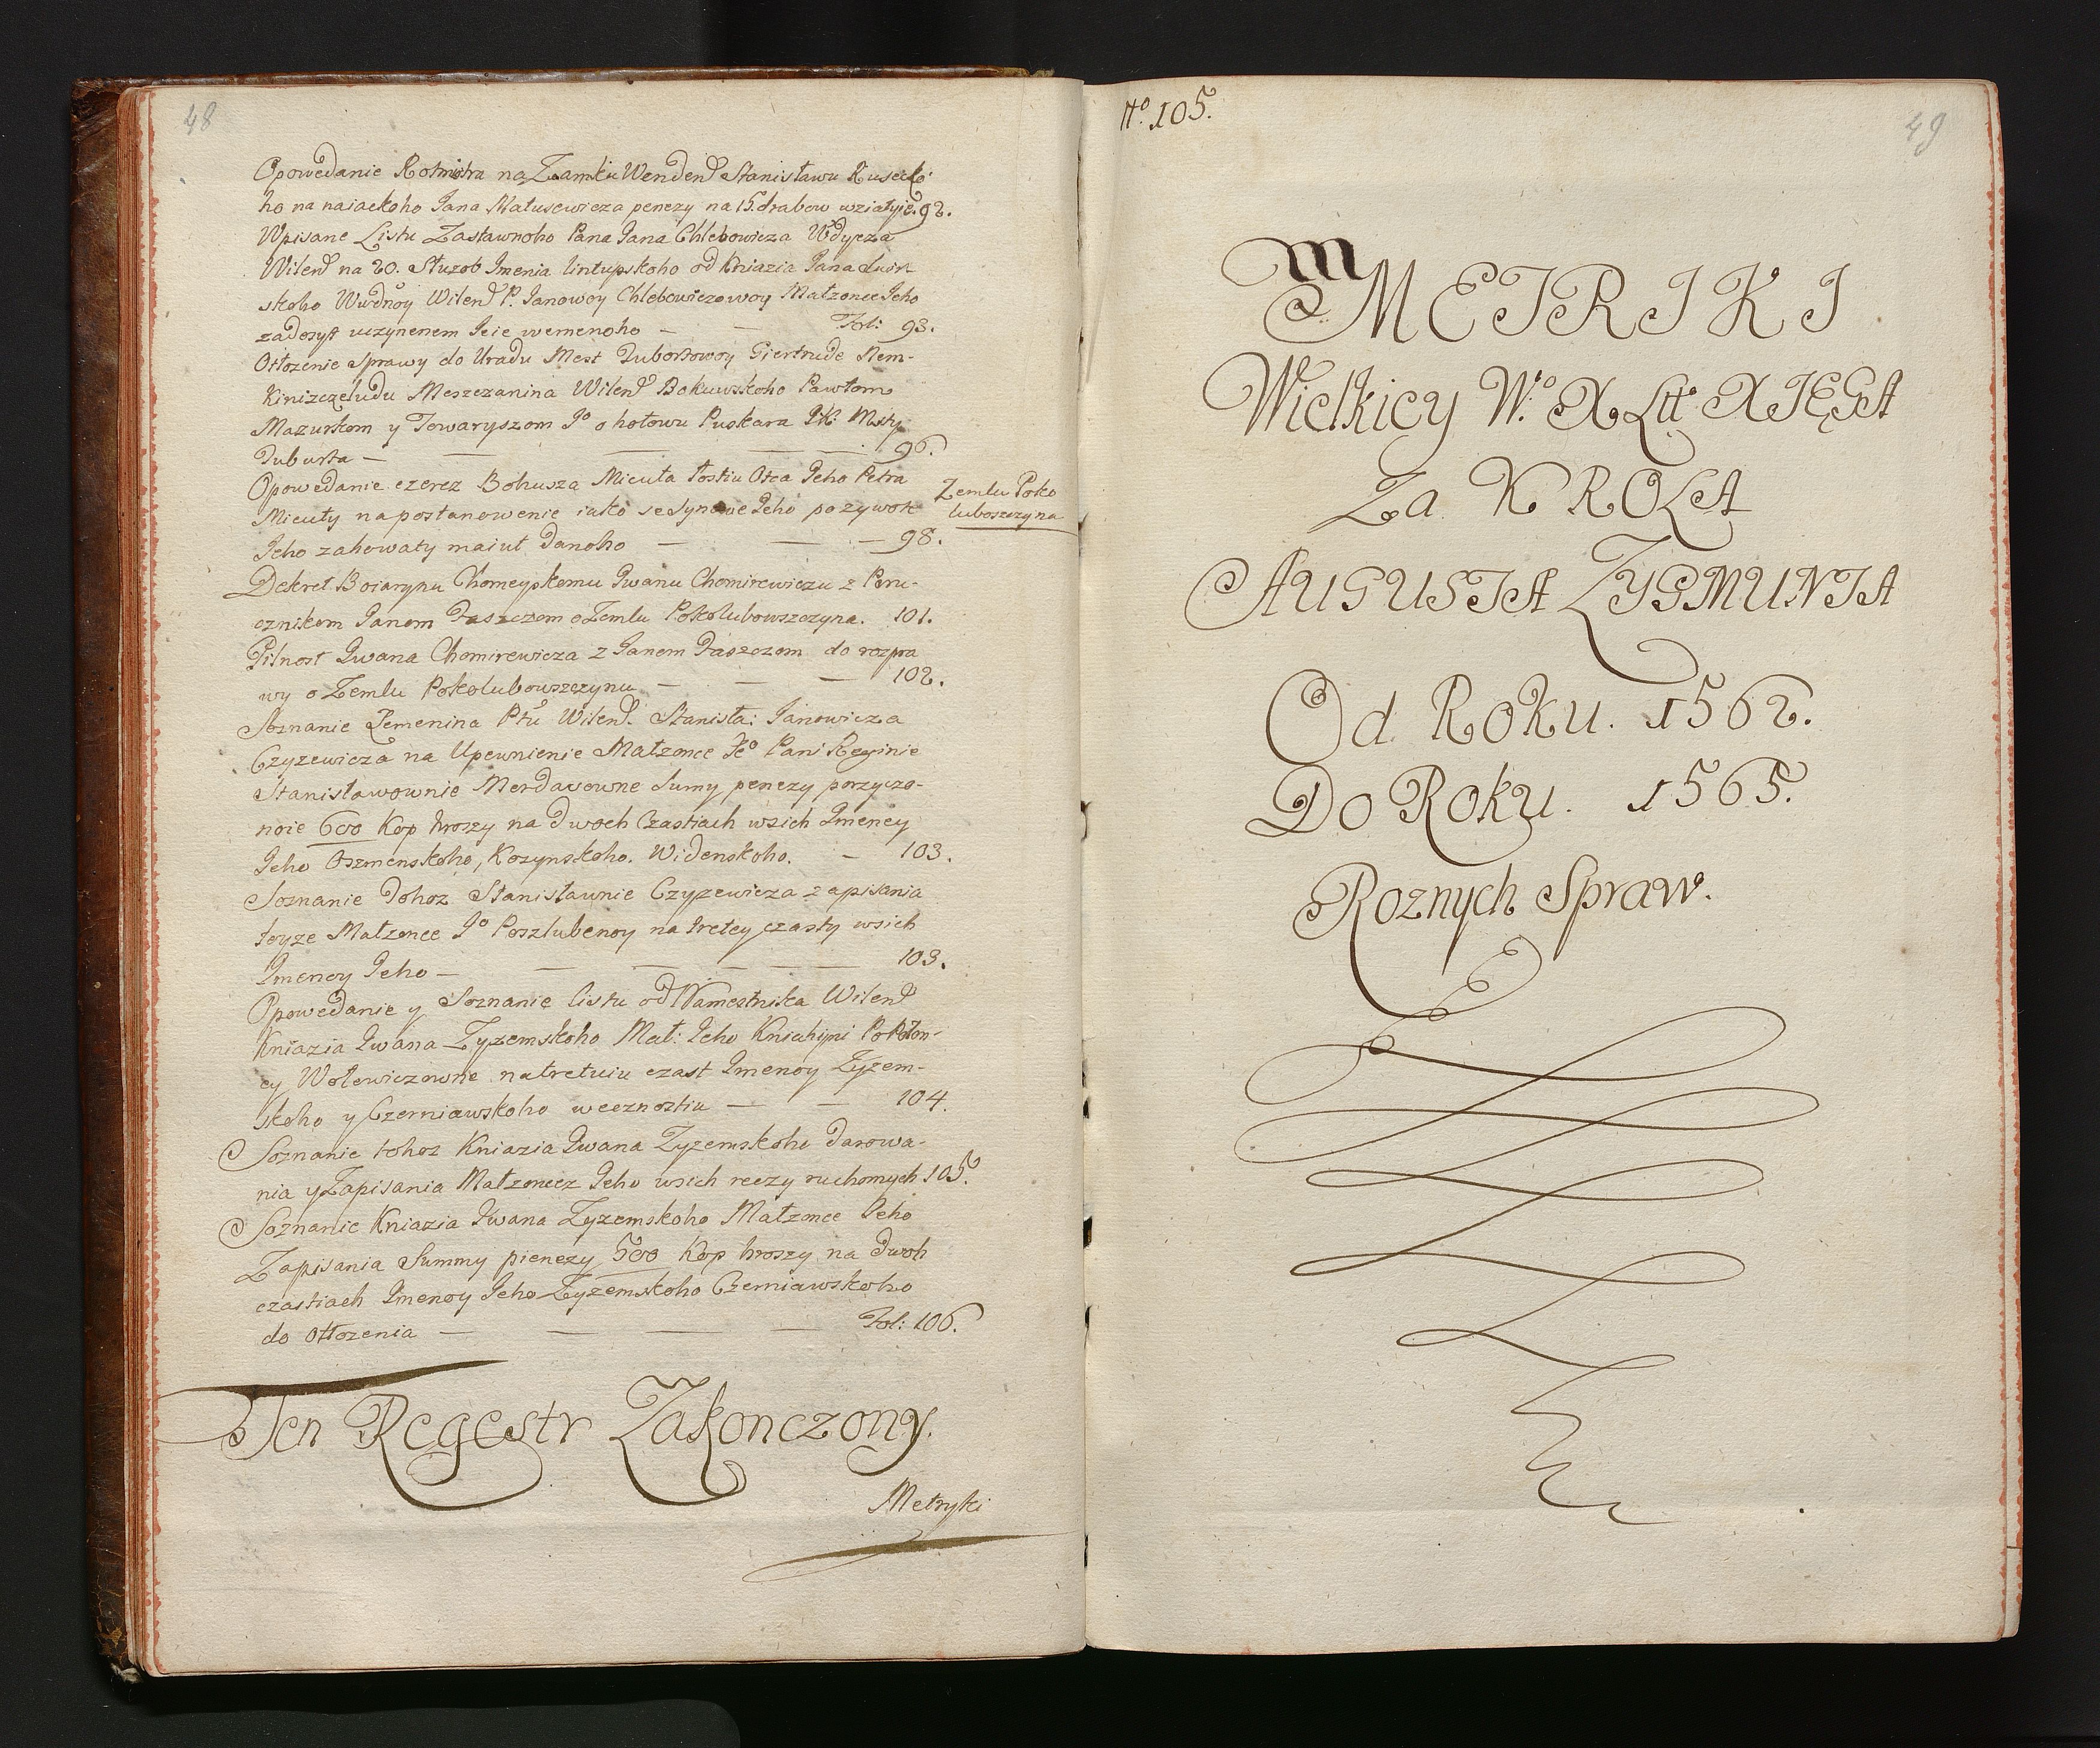 48
Opowedanie Rotmistra na Zamku Wenden Stanisławu Kusecko
ho na naiackoho Jana Matusewicza penezy na 15. drabow wziatyie. 92.
Wpisane Listu Zastawnoho Pana Jana Chlebowicza Wdycza
Wilen na 20. Słuzob Imenia lintupskoho od Kniazia Jana
skoho Wwdnoy Wilen P. Janowoy Chlebowiczowoy Małzonce Jeho
zadosyt uczynenem Jeie wemenoho — — Fol: 93.
Otłozenie Sprawy do Uradu Mest Dubortowoy Giertrude Nem-
Meszczanina Wilen Bokuwskoho Pawłom
Mazurkom y Towaryszom Jo o hołowu Puskara JK: Msty
Duburta — — — 96.
Opowedanie czerez Bohusza Micuta Łostiu Otca Jeho Petra
Micuty na postanowenie iako se Synowe Jeho pozywok
Jeho zahowaty maiut danoho — — — 98.
Zemlu Poko
luboszczyna
Dekret Boiarynu Chomeyskomu Iwanu Chomirewiczu z Poru-
cznikom Panom Paszczom o Zemlu Pokolubowszczyna. 101.
Pilnost Iwana Chomirewicza z Panem Paszczom do rozpra
wy o Zemlu Pokolubowszczynu — — — 102.
Soznanie Zemenina Ptu Wilen. Stanisła: Janowicza
Czyzewicza na Upewnienie Małzonce Jeo Pani Reginie
Stanisławownie Mordasowne Sumy penezy pozyczo-
noie 600 Kop hroszy na dwoch Czastiach wsich Imeney
Jeho Oszmenskoho, Kozynskoho. Widenskoho. — 103.
Soznanie Tohoz Stanisławnie Czyzewicza zapisania
toyze Małzonce Jo Poszlubenoy na tretey czasty wsich
Imenoy Jeho — — — — — 103.
Opowedanie y Soznanie listu od Namestnika Wilen
Kniazia Iwana Zyzemskoho Mał: Jeho Kniahyni
cy Wołowiczowne na tretuiu czast Imenoy Zyzem-
skoho y Czerniawskoho wecznostiu — — 104.
Soznanie tohoz Kniazia Iwana Zyzemskoho darowa-
nia y Zapisania Małzoncez Jeho wsich reczy ruchomych 105.
Soznanie Kniazia Iwana Zyzemskoho Małzonce Jeho
Zapisania Summy pienezy 500 Kop hroszy na dwoh
czastiach Imenoy Jeho Zyzemskoho Czerniawskoho
do Otłozenia — — — — Fol: 106.
Ten Regestr Zakonczony.
Metryki
No. 105.
49
METRIKI
Wielkiey W.o X Litt.o XIĘGA
Za KROLA
AUGUSTA ZYGMUNTA
Od Roku. 1562.
Do Roku. 1565.
Roznych Spraw.